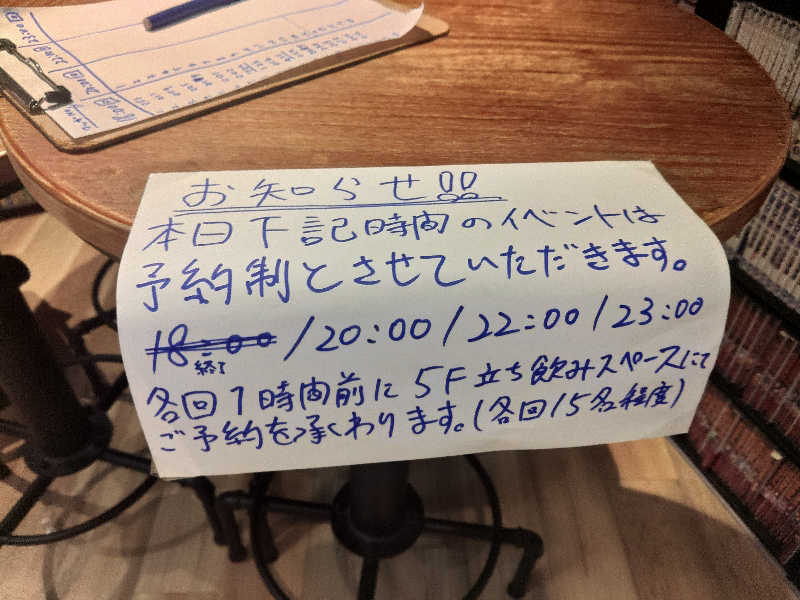 お知らせ!!
本日下記時間のイベントは
予約制とさせていただきます。
18:00/20:00/22:00/23:00
終了
各回1時間前に5F立ち飲みスペースにて
ご予約を承くわります。(各回15名程度)